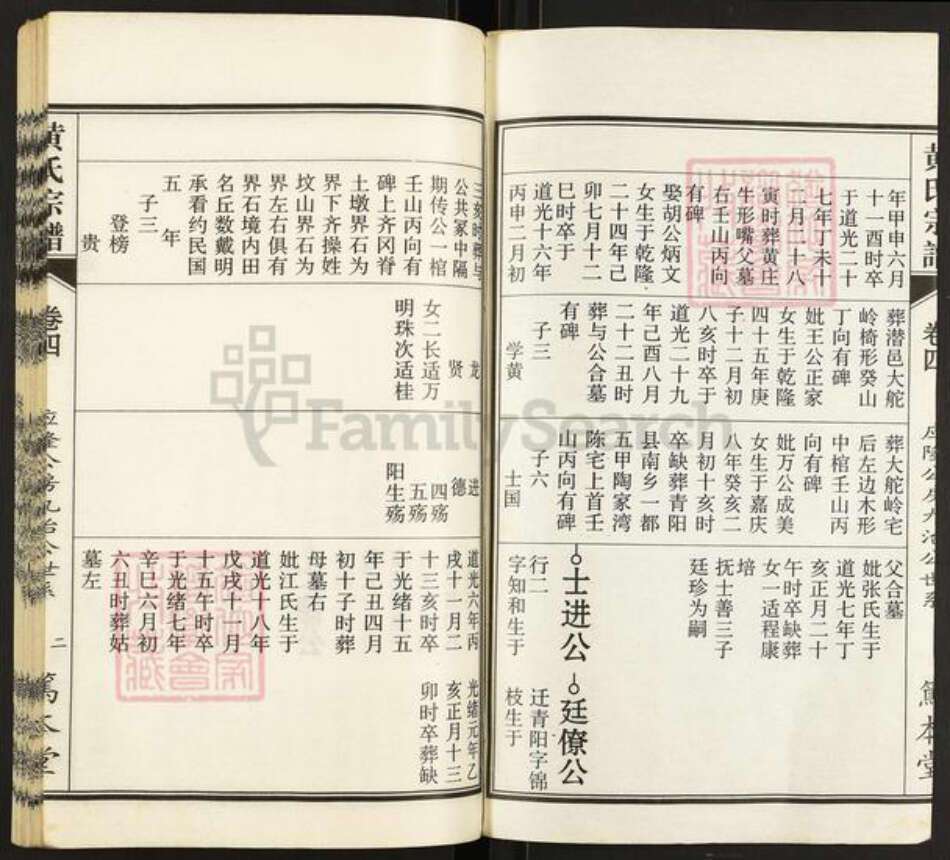 黄氏宗谱
卷四
笃本堂
年甲申六月
十一酉时卒
于道光二十
七年丁未十
二月二十八
寅时葬黄庄
牛形嘴父墓
右壬山丙向
有碑
娶胡公炳文
女生于乾隆
二十四年己
卯七月十二
巳时卒于
道光十六年
丙申二月初
葬潜邑大舵
岭椅形癸山
丁向有碑
妣王公正家
女生于乾隆
四十五年庚
子十二月初
八亥时卒于
道光二十九
年己酉八月
二十二丑时
葬与公合墓
有碑
子三
学黄
葬大舵岭宅
后左边木形
中棺壬山丙
向有碑
妣万公成美
女生于嘉庆
八年癸亥二
月初十亥时
卒缺葬青阳
县南乡一都
五甲陶家湾
陈宅上首壬
山丙向有碑
子六
士国
父合墓
妣张氏生于
道光七年丁
亥正月二十
午时卒缺葬
女一适程康
培
抚士善三子
廷珍为嗣
士进公
廷僚公
行二
字知和生于
迁青阳字锦
枝生于
三刻时葬与
公共冢中隔
期传公一棺
壬山丙向有
碑上齐冈脊
土墩界石为
界下齐操姓
坟山界石为
界左右俱有
界石境内田
名丘数戴明
承看约民国
五年
子三
登榜
贵
龙
贤
女二长适万
明珠次适桂
进
德
四殇
五殇
阳生殇
道光六年丙
戌十一月二
十三亥时卒
于光绪十五
年己丑四月
初十子时葬
母墓右
妣江氏生于
道光十八年
戊戌十一月
十五午时卒
于光绪七年
辛巳六月初
六丑时葬姑
墓左
光绪元年乙
亥正月十三
卯时卒葬缺
黄氏宗谱
卷四
二
笃本堂
FamilySearch